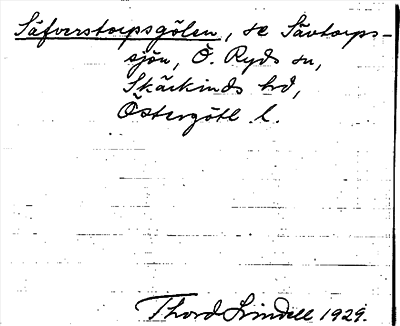 Säfverstorpsgölen, se Sävtorps-
sjön, Ö. Ryds sn,
Skärkinds hd,
Östergötl. l.
Thord Lindell 1929.